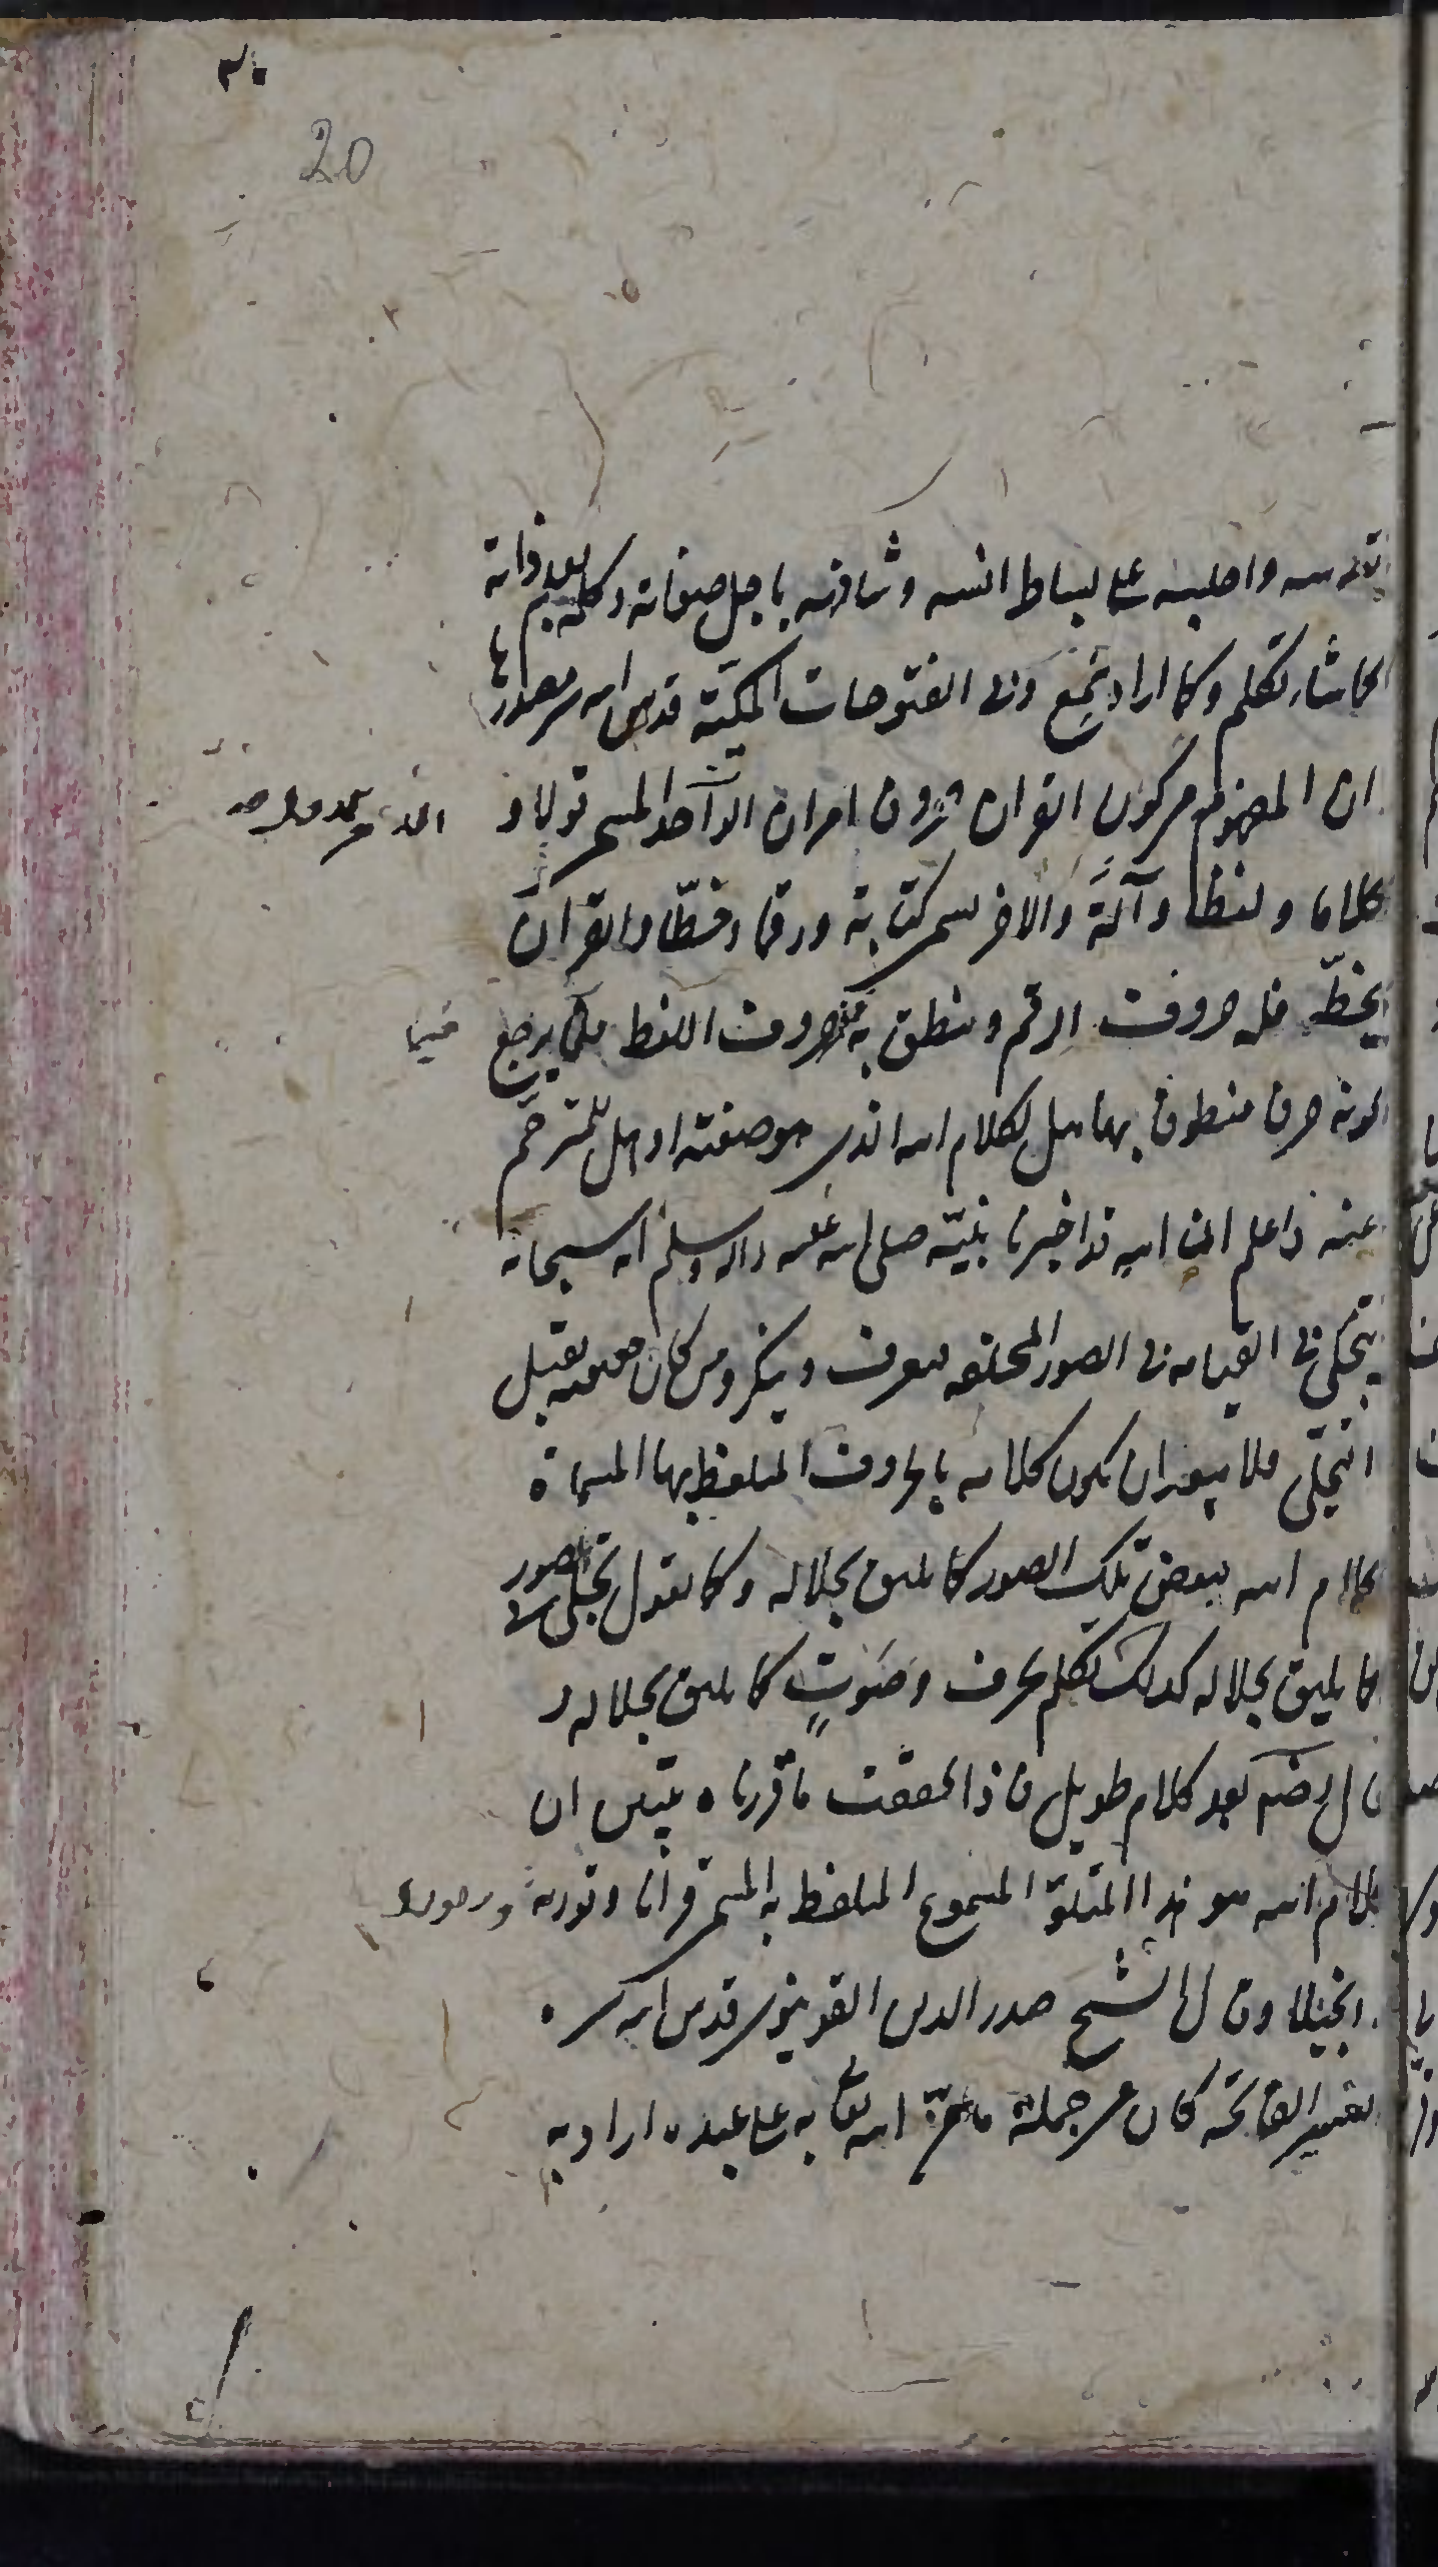 ۲۰
20
قدسه واجلسه علی بساط انسه وشافهه باجل صفاته وكلمه بعد ذاته
كما شاء تكلم وكما اراد سمع وفی الفتوحات المكية قدس الله سر مصدرها
ان المفهوم من كون القران حروفا امران الامر الواحد المسمی قولا و
كلاما ولفظا والاخر يسمی كتابة ورقما وخطا والقران
يخط فله حروف الرقم وينطق به فله حروف اللفظ فلما يرجع
كونه حروفا منطوقا بها هل لكلام الله الذی هو صفته او هل للمترجم
عنه فاعلم ان الله قد اخبرنا نبيه صلی الله عليه واله وسلم انه سبحانه
يتجلی فی القيامة فی الصور المختلفة فيعرف وينكر ومن كان حقيقته يقبل
التجلی فلا يبعد ان يكون كلامه بالحروف المتلفظ بها المسماة
كلام الله ببعض تلك الصور كما يليق بجلاله وكما نقول تجلی فی الصور
كما يليق بجلاله كذلك تكلم بحرف وصوت كما يليق بجلاله و
قال رضه بعد كلام طويل فاذا تحققت ما قررناه تبين ان
كلام الله هو هذا المتلو المسموع المتلفظ به المسمی قرانا وتورية وزبورا
وانجيلا وقال الشيخ صدر الدين القونيوی قدس الله سره
تفسير الفاتحة كان من جملة ما من الله تعالی به علی عبده اراد به